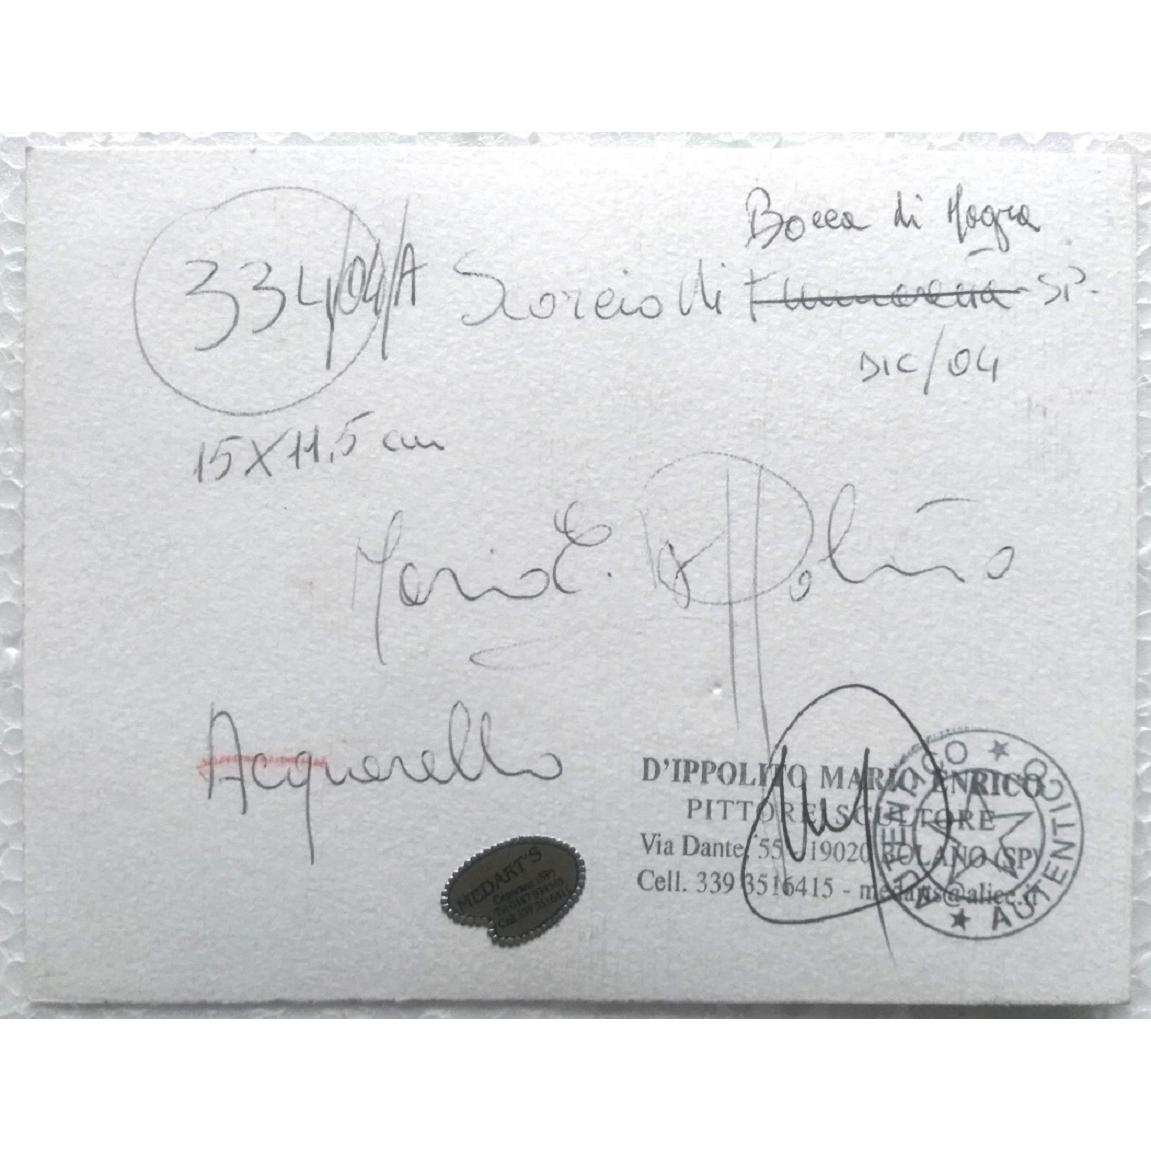 Bocca di Magra
334/04/A Scorcio di Fiumaretta - SP-
DIC/04
15X11,5 cm
Mario E. D'Ippolito
Acquarello
D'IPPOLITO MARIO ENRICO
PITTORE SCULTORE
Via Dante, 55 - 19020 BOLANO (SP)
Cell. 339 3516415 - medarts@alice.it
AUTENTICO ★ AUTENTICO ★
MEDART'S
Cell. 339 3516415